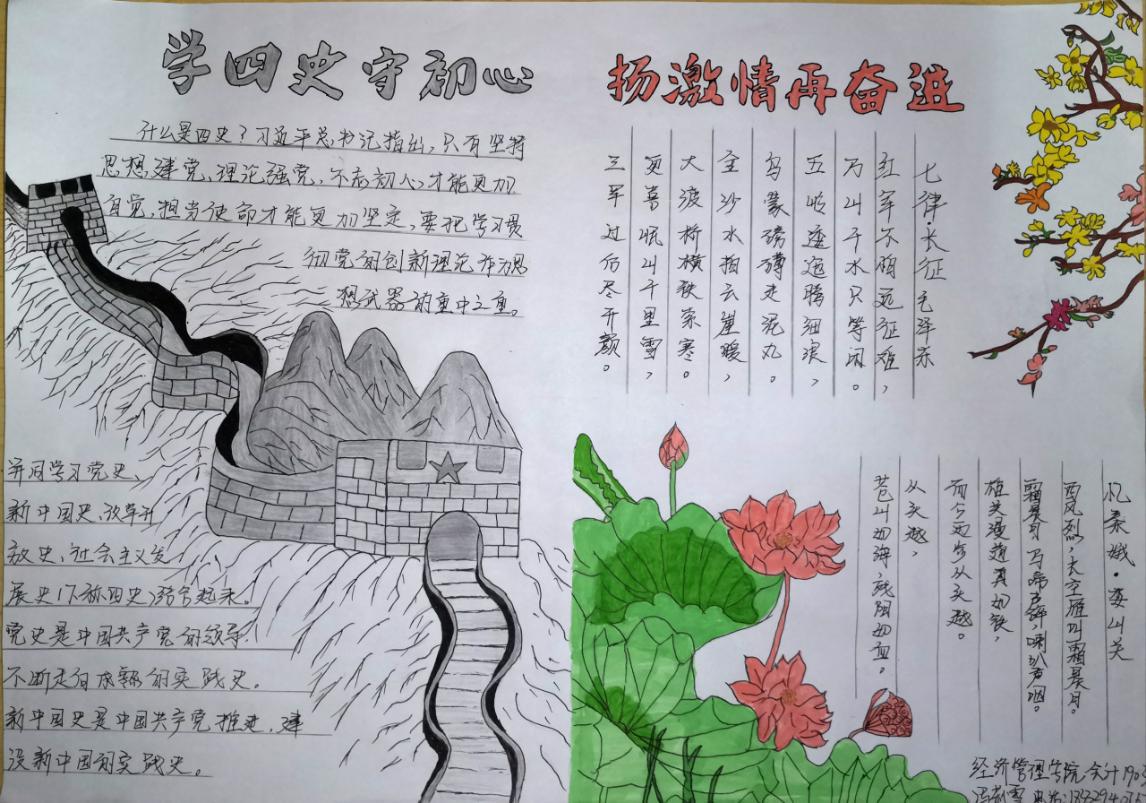 学四史守初心
什么是四史？习近平总书记指出，只有坚持
思想建党、理论强党，不忘初心才能更加
自觉，担当使命才能更加坚定，要把学习贯
彻党的创新理论作为思
想武器的重中之重。
并同学习党史、
新中国史、改革开
放史、社会主义发
展史（下称四史）结合起来。
党史是中国共产党的领导
不断走向成熟的实践史。
新中国史是中国共产党推进、建
设新中国的实践史。
扬激情再奋进
七律·长征 毛泽东
红军不怕远征难，
万山千水只等闲。
五岭逶迤腾细浪，
乌蒙磅礴走泥丸。
金沙水拍云崖暖，
大渡桥横铁索寒。
更喜岷山千里雪，
三军过后尽开颜。
忆秦娥·娄山关
西风烈，长空雁叫霜晨月。
霜晨月，马蹄声碎，喇叭声咽。
雄关漫道真如铁，
而今迈步从头越。
从头越，
苍山如海，残阳如血。
经济管理学院会计190